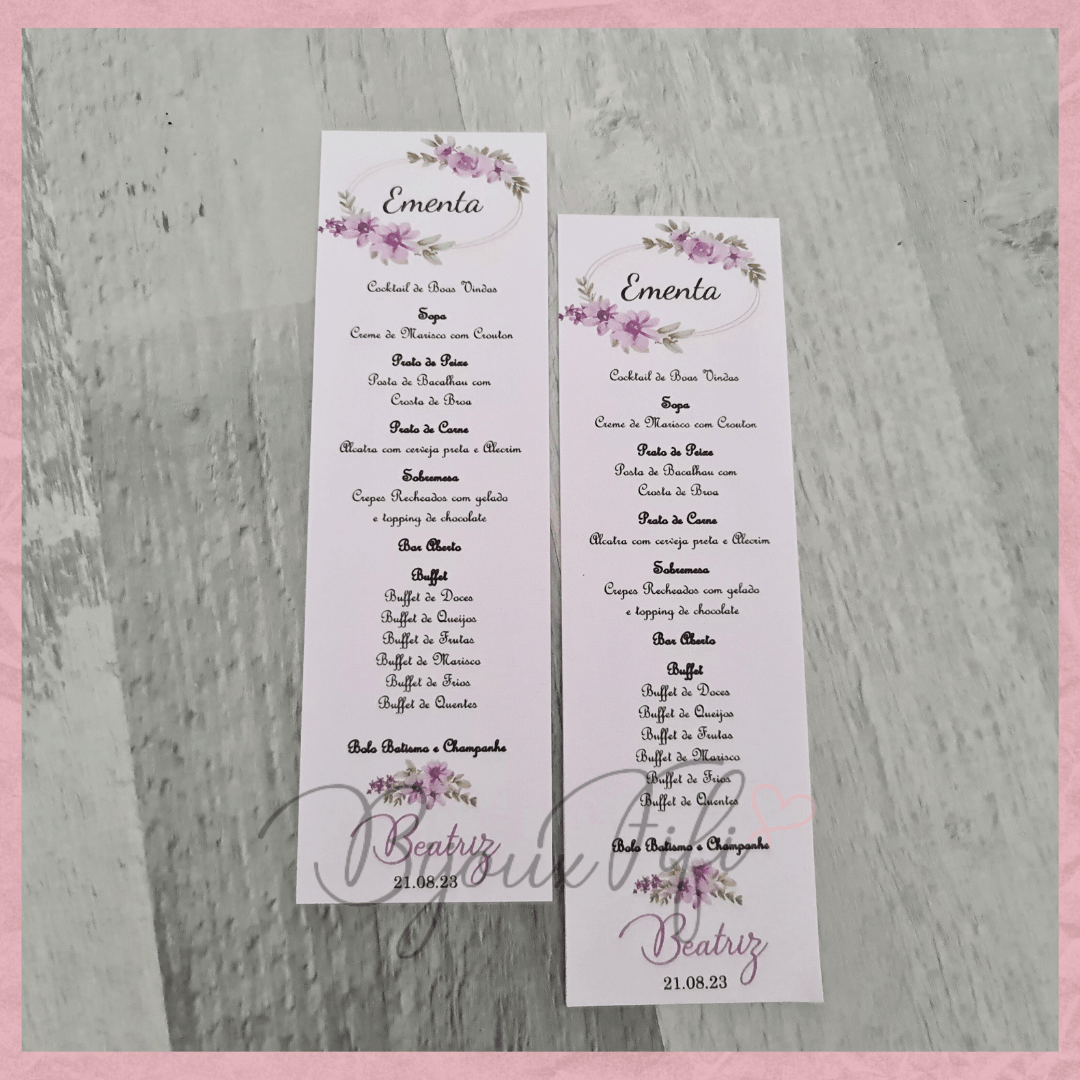 Ementa
Cocktail de Boas Vindas
Sopa
Creme de Marisco com Crouton
Prato de Peixe
Posta de Bacalhau com
Crosta de Broa
Prato de Carne
Alcatra com cerveja preta e Alecrim
Sobremesa
Crepes Recheados com gelado
e topping de chocolate
Bar Aberto
Buffet
Buffet de Doces
Buffet de Queijos
Buffet de Frutas
Buffet de Marisco
Buffet de Frios
Buffet de Quentes
Bolo Batismo e Champanhe
Beatriz
21.08.23
Ementa
Cocktail de Boas Vindas
Sopa
Creme de Marisco com Crouton
Prato de Peixe
Posta de Bacalhau com
Crosta de Broa
Prato de Carne
Alcatra com cerveja preta e Alecrim
Sobremesa
Crepes Recheados com gelado
e topping de chocolate
Bar Aberto
Buffet
Buffet de Doces
Buffet de Queijos
Buffet de Frutas
Buffet de Marisco
Buffet de Frios
Buffet de Quentes
Bolo Batismo e Champanhe
Beatriz
21.08.23
Byoux Fifi